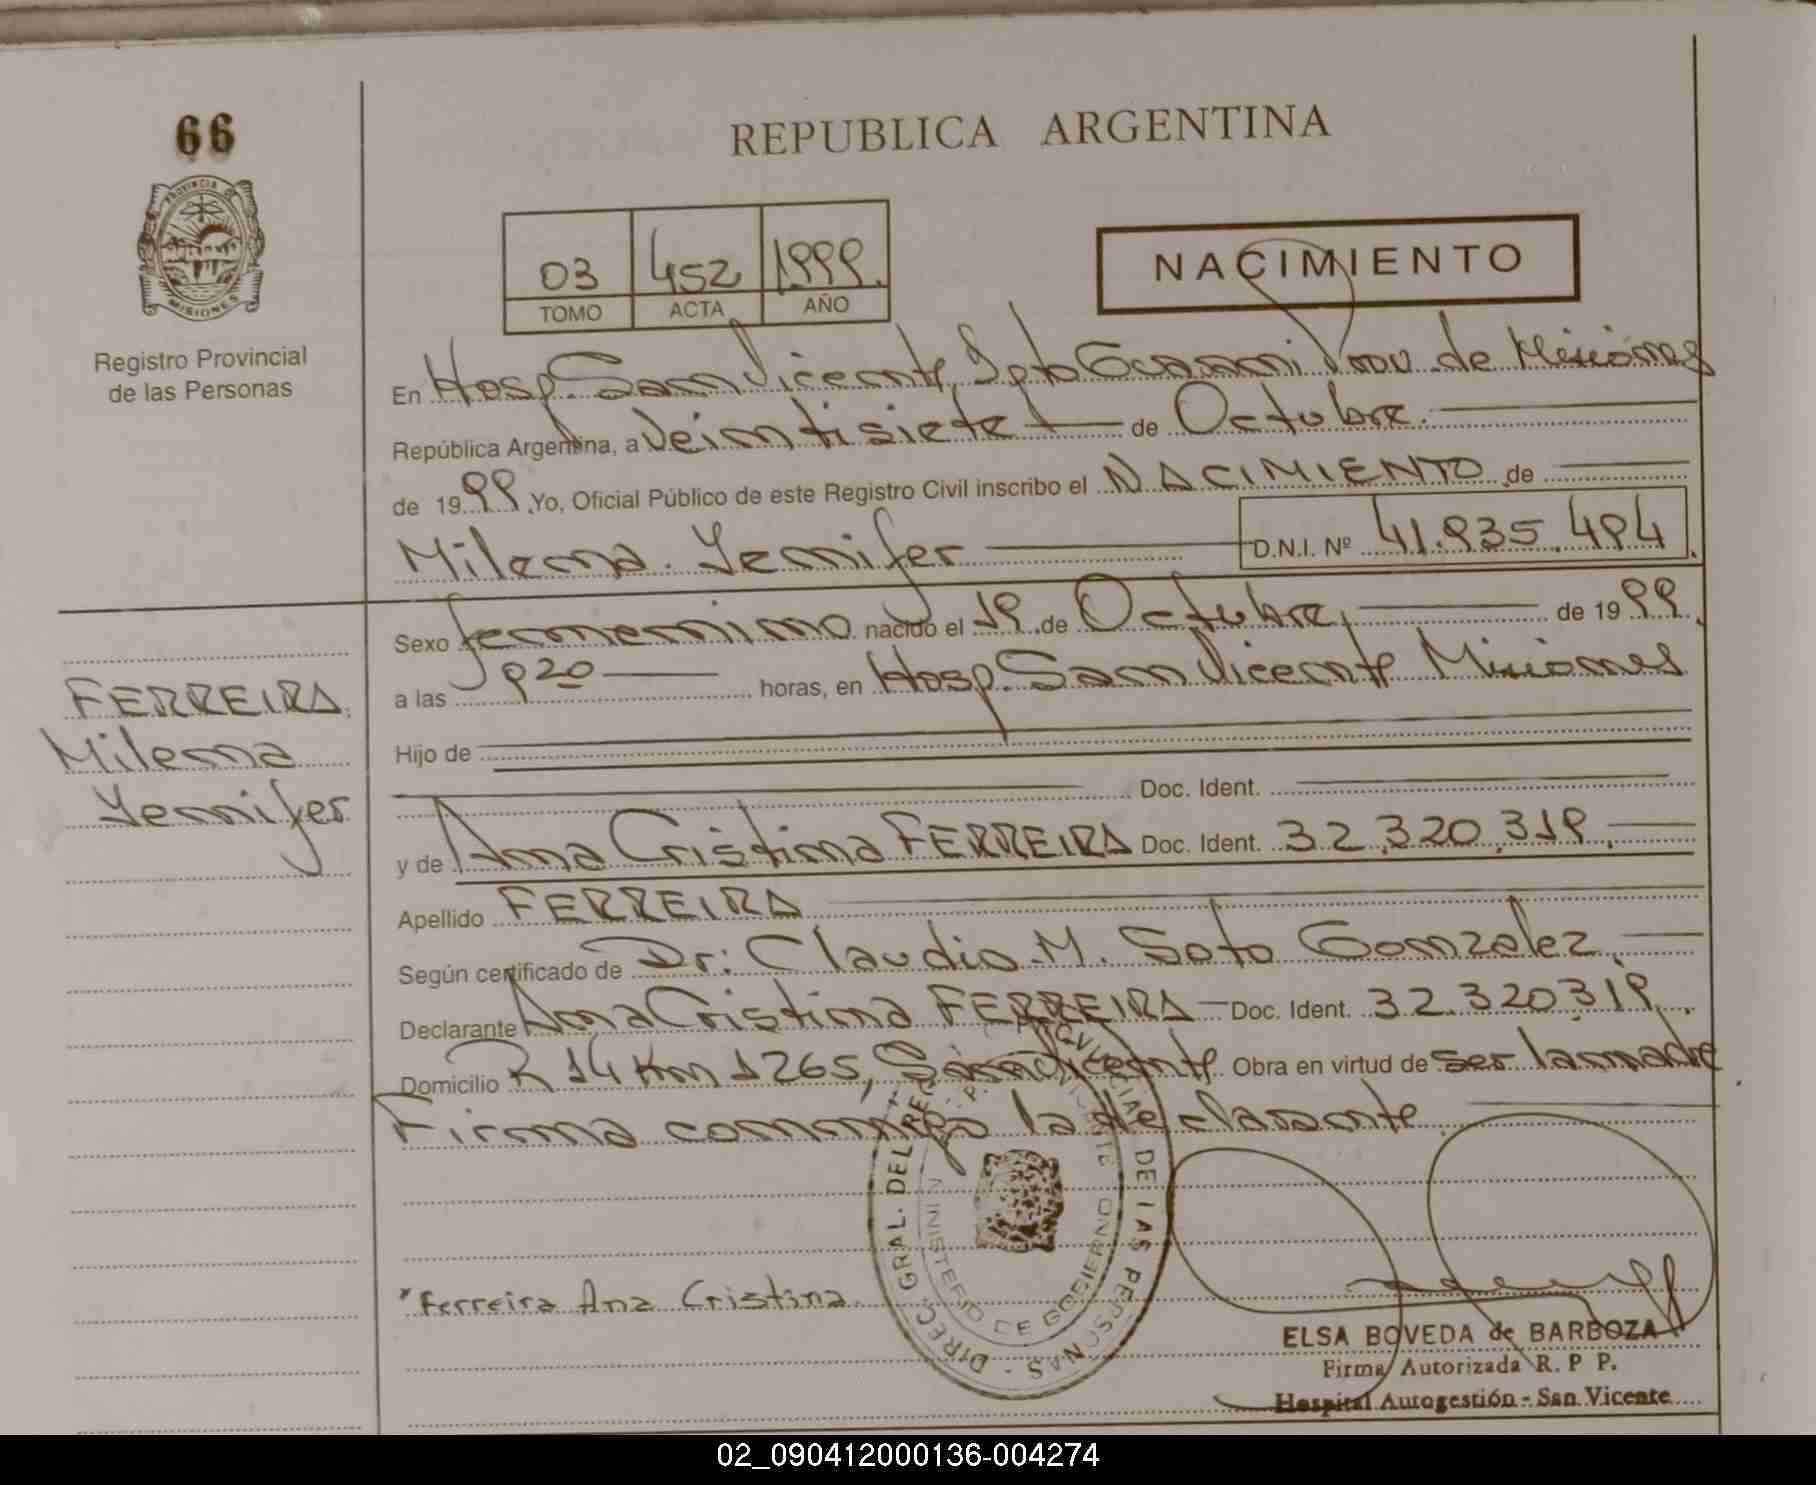 66
REPUBLICA ARGENTINA
PROVINCIA DE
MISIONES
Registro Provincial
de las Personas
03 452 1999
TOMO ACTA AÑO
NACIMIENTO
En Hosp. San Vicente, Dpto Guarani Prov. de Misiones
República Argentina, a Veintisiete de Octubre.
de 1999. Yo, Oficial Público de este Registro Civil inscribo el NACIMIENTO de
Milena Yennifer D.N.I. Nº 41.935.494
Sexo femenino nacido el 19 de Octubre, de 1999.
a las 920 horas, en Hosp. San Vicente Misiones
FERREIRA
Milena
Yennifer
Hijo de
Doc. Ident.
y de Ana Cristina FERREIRA Doc. Ident. 32.320.319.
Apellido FERREIRA
Según certificado de Dr: Claudio M. Soto Gonzalez.
Declarante Ana Cristina FERREIRA Doc. Ident. 32.320.319.
Domicilio R 14 Km 1265, San Vicente Obra en virtud de ser la madre
Firma conmigo la declarante
DIREC. GRAL. DEL REG. PROVINCIAL DE LAS PERSONAS
MINISTERIO DE GOBIERNO
Ferreira Ana Cristina
ELSA BOVEDA de BARBOZA
Firma Autorizada R. P P.
Hospital Autogestión - San Vicente
02_090412000136-004274